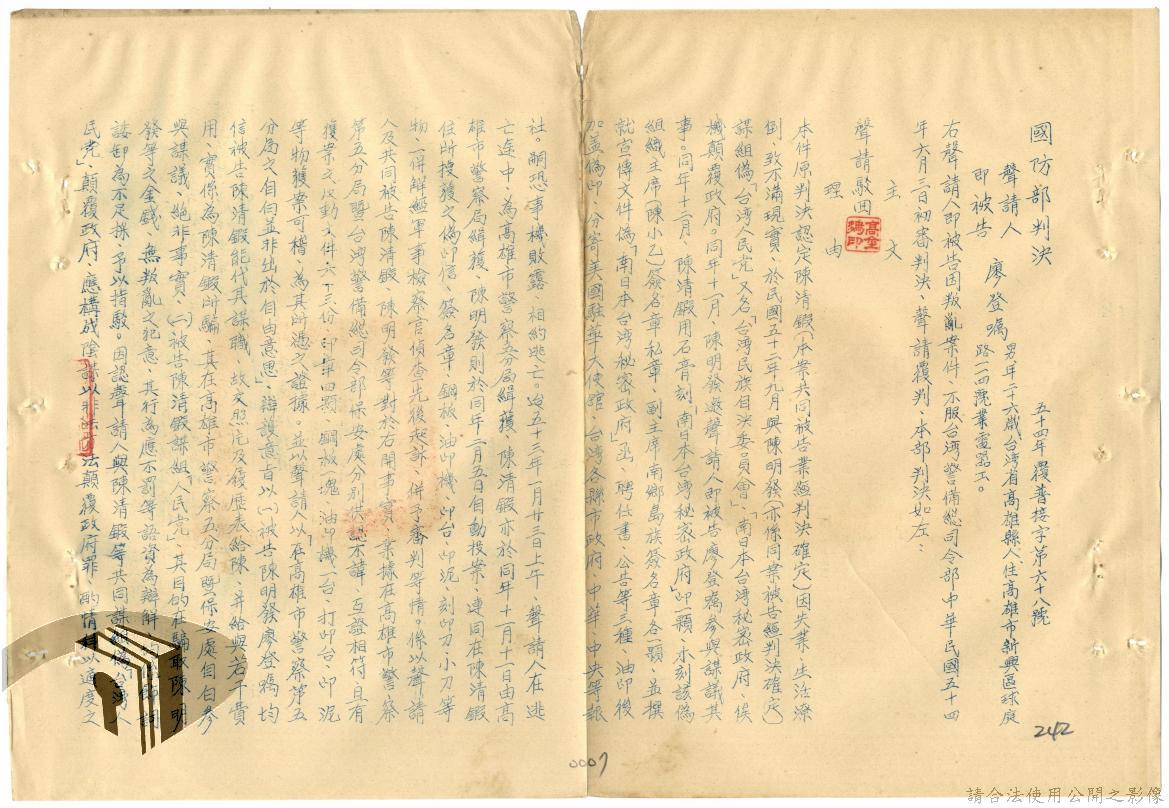 國防部判決
五十四年覆普接字第六十八號
聲請人
即被告
廖登囑
男年二十六歲台灣省高雄縣人住高雄市新興區球庭
路一一四號業電器工。
右聲請人即被告因叛亂案件、不服台灣警備總司令部中華民國五十四
年六月三日初審判決、聲請覆判、本部判決如左：
主文
聲請駁回
理由
本件原判決認定陳清鍛(本案共同被告業經判決確定)因失業、生活潦
倒、致不滿現實、於民國五十二年九月與陳明發(亦係同案被告經判決確定)
謀組偽「台湾人民党」又名「台湾民族自决委員會」、「南日本台湾秘密政府」、俟
機顛覆政府。同年十一月、陳明發邀聲請人即被告廖登囑參與謀議其
事。同年十二月、陳清鍛用石膏刻「南日本台湾秘密政府」印一顆、木刻該偽
組織主席(陳小乙)簽名章私章、副主席南鄉島族簽名章各一顆、並撰
就宣傳文件偽「南日本台湾秘密政府」函、聘任書、公告等三種、油印後
加盖偽印、分寄美國駐華大使館、台湾各縣市政府、中華、中央等報
社。嗣恐事機敗露、相約逃亡。迨五十三年一月廿三日上午、聲請人在逃
亡途中、為高雄市警察五分局緝獲、陳清鍛亦於同年十一月十一日由高
雄市警察局緝獲、陳明發則於同年二月五日自動投案、連同在陳清鍛
住所搜獲之偽印信、簽名章、鋼板、油印機、印台、印泥、刻印刀小刀等
物、一併解經軍事檢察官偵查先後起訴、併予審判等情。係以聲請
人及共同被告陳清鍛、陳明發等對於右開事實、業據在高雄市警察
第五分局暨台湾警備總司令部保安處分別供認不諱、互證相符、且有
獲案之反動文件六十三份、印章四顆、鋼板一塊、油印機一台、打印台、印泥
等物獲案可稽、為其所憑之證據。並以聲請人以「在高雄市警察第五
分局之自白並非出於自由意思」、辯護意旨以(一)被告陳明發廖登囑均
信被告陳清鍛能代其謀職、故交照片及履歷表給陳、并給與若干費
用、實係為陳清鍛所騙、其在高雄市警察五分局暨保安處自白參
與謀議、絕非事實、(二)被告陳清鍛謀組「人民党」、其目的在騙取陳明
發等之金錢、無叛亂之犯意、其行為應不罰等語資為辯解、均
諉卸為不足採、予以指駁。因認聲請人與陳清鍛等共同謀組偽「台湾人
民党」、顛覆政府、應構成陰謀以非法方法顛覆政府罪、酌情科以適度之
242
0007
請合法使用公開之影像